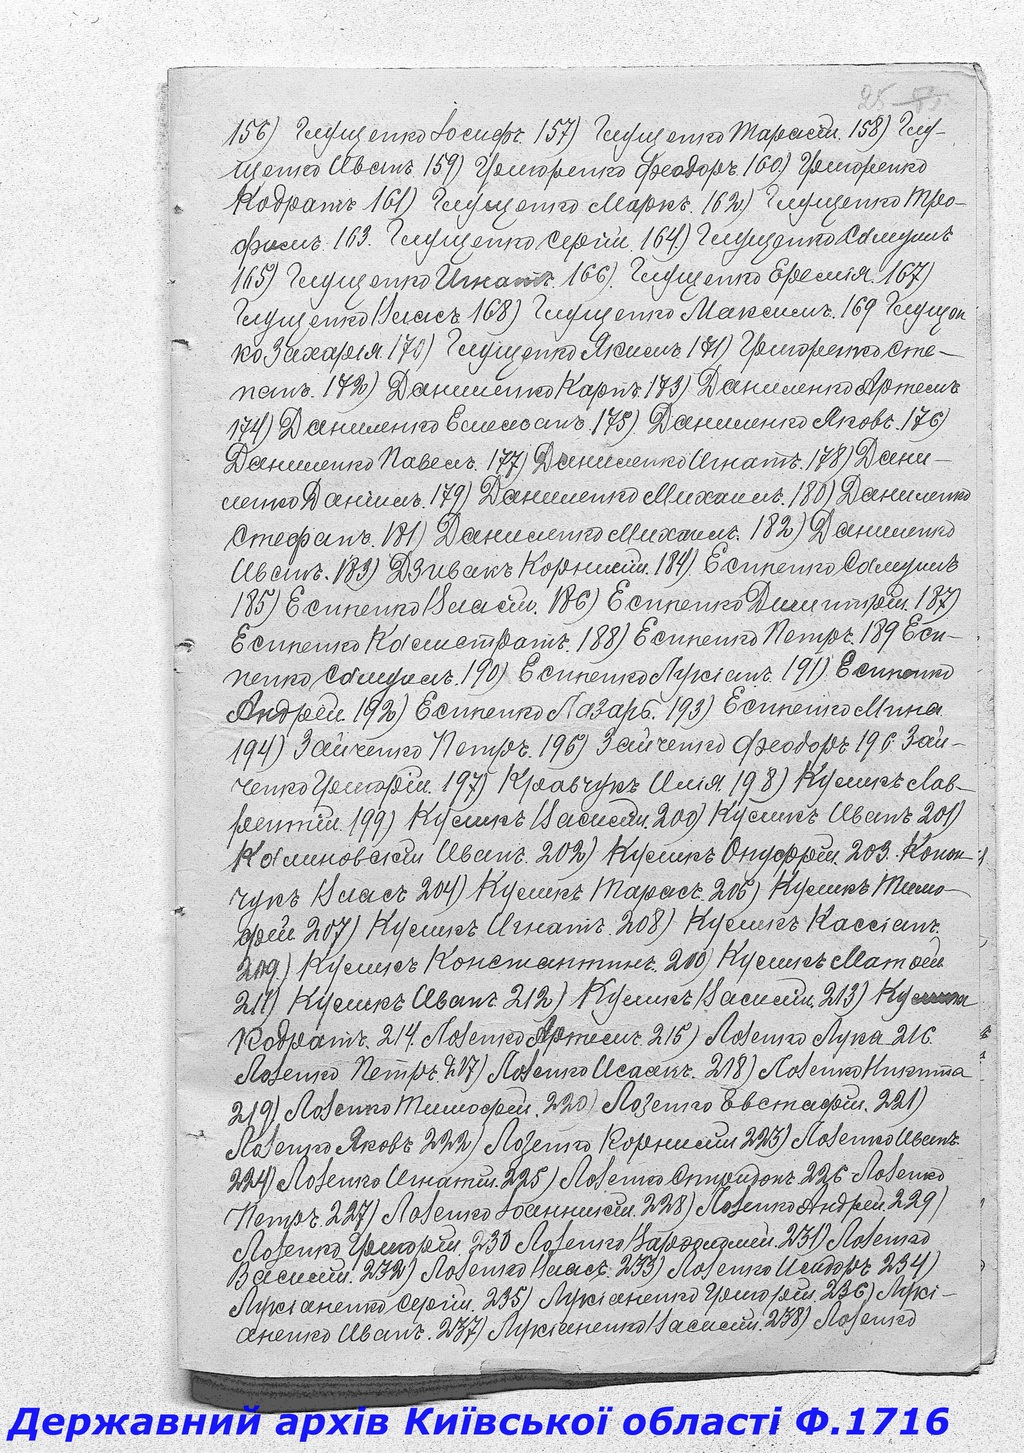 25
156) Глущенко Іосифъ. 157) Глущенко Тарасій. 158) Глу-
щенко Иванъ. 159) Григоренко Феодоръ. 160) Григоренко
Кодратъ 161) Глущенко Маркъ. 162) Глущенко Тро-
фимъ. 163. Глущенко Сергій. 164) Глущенко Самуилъ
165) Глущенко Игнатъ. 166) Глущенко Еремія. 167)
Глущенко Власъ 168) Глущенко Максимъ. 169 Глущен
ко Захарія 170) Глущенко Якимъ 171) Григоренко Сте-
панъ. 172) Даниленко Карпъ. 173) Даниленко Артемъ
174) Даниленко Емельянъ. 175) Даниленко Яковъ. 176)
Даниленко Павелъ. 177) Даниленко Игнатъ. 178) Дани-
ленко Даніилъ. 179) Даниленко Михаилъ. 180) Даниленко
Стефанъ. 181) Даниленко Михаилъ. 182) Даниленко
Иванъ. 183) Дзивакъ Корнилій. 184) Есипенко Самуилъ
185) Есипенко Власій. 186) Есипенко Димитрій. 187)
Есипенко Калистратъ. 188) Есипенко Петръ. 189 Еси-
пенко Самуилъ. 190) Есипенко Лукіанъ. 191) Есипенко
Андрей. 192) Есипенко Лазарь. 193) Есипенко Мина
194) Зайченко Петръ. 195) Зайченко Феодоръ 196. Зай-
ченко Григорій. 197) Кравчукъ Илія. 198) Куликъ Лав-
рентій. 199) Куликъ Василій. 200) Куликъ Иванъ 201)
Калиновскій Иванъ. 202) Куликъ Онуфрій. 203. Конон-
чукъ Власъ 204) Куликъ Тарасъ. 205) Куликъ Тимо-
фей 207) Куликъ Игнатъ. 208) Куликъ Кассіанъ.
209.) Куликъ Константинъ. 210) Куликъ Матвей
211) Куликъ Иванъ. 212) Куликъ Василій. 213)
Кодратъ. 214. Лозенко Артемъ. 215) Лозенко Лука 216.
Лозенко Петръ. 217) Лозенко Исаакъ. 218) Лозенко Никита
219) Лозенко Тимофей. 220) Лозенко Евстафій. 221)
Лозенко Яковъ 222) Лозенко Корнилій 223) Лозенко Иванъ.
224) Лозенко Игнатій. 225) Лозенко Спиридонъ 226 Лозенко
Петръ. 227) Лозенко Іоанникій. 228) Лозенко Андрей 229)
Лозенко Григорій. 230 Лозенко Варфоломей. 231) Лозенко
Василій. 232) Лозенко Власъ. 233) Лозенко Исидоръ 234)
Лукіаненко Сергій. 235) Лукіаненко Григорій. 236) Лукі-
аненко Иванъ. 237) Лукіаненко Василій. 238) Лозенко
Державний архів Київської області Ф.1716